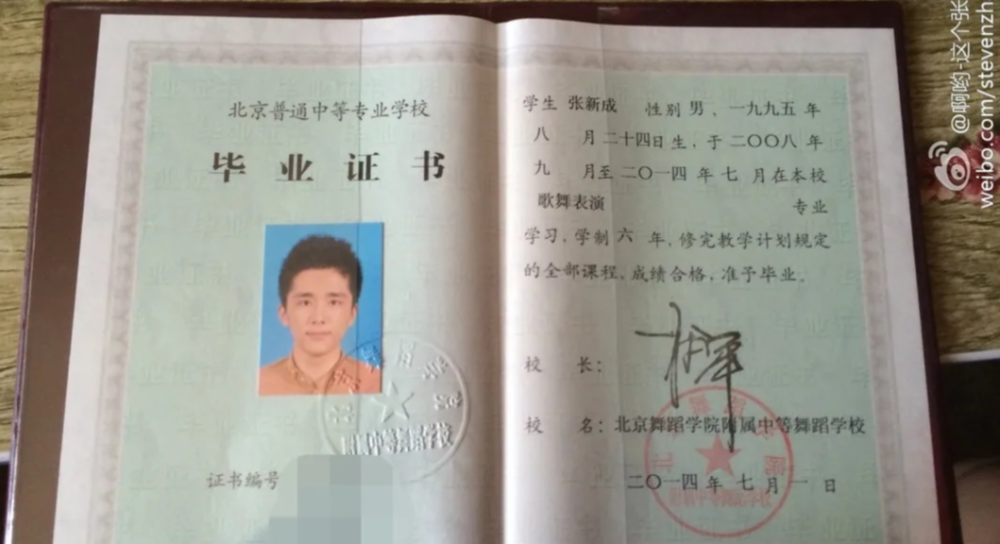 北京普通中等专业学校
毕业证书
证书编号
学生 张新成 性别 男，一九九五 年
八 月 二十四日 生，于 二〇〇八 年
九 月至 二〇一四 年 七 月在本校
歌舞表演 专业
学习，学制 六 年，修完教学计划规定
的全部课程，成绩合格，准予毕业。
校 长：
校 名：北京舞蹈学院附属中等舞蹈学校
二〇一四 年 七 月 一 日
附属中等舞蹈学校
@啊哟-这个张
weibo.com/stevenzh